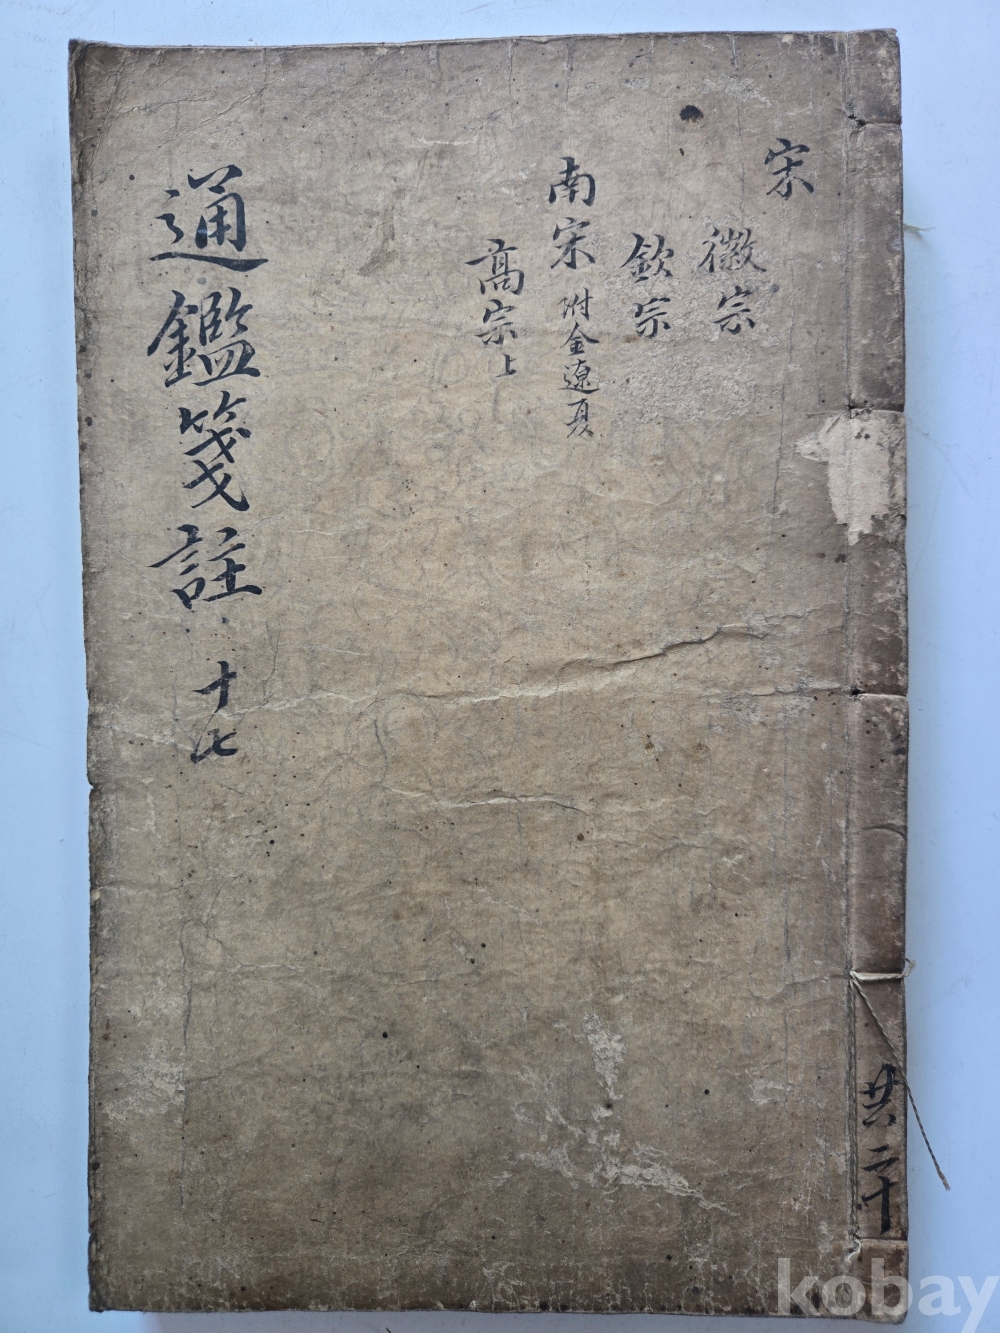 宋
徽宗
欽宗
南宋 附金遼夏
高宗上
通鑑箋註 十七
共二十
kobay